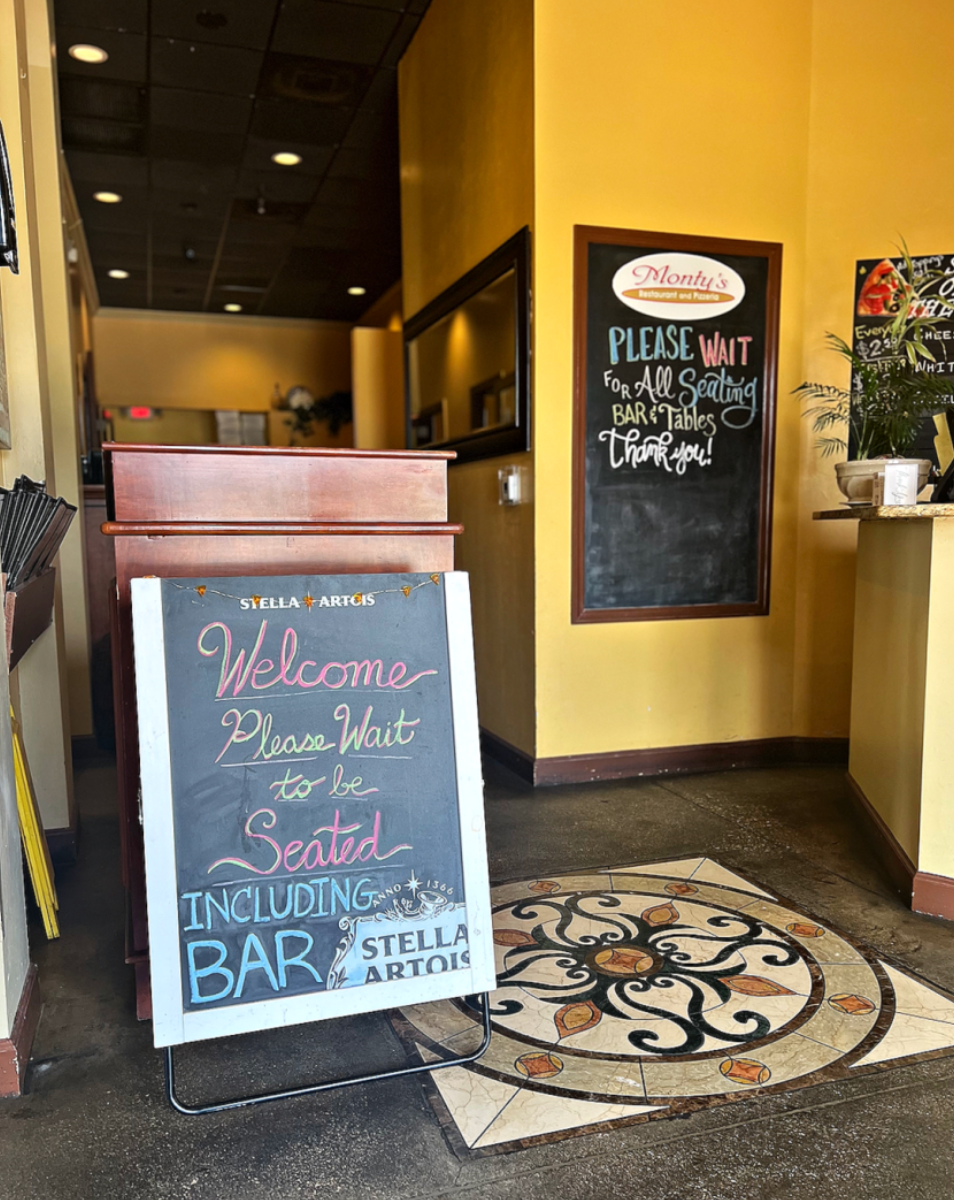 STELLA ARTOIS
Welcome
Please Wait
to be
Seated
INCLUDING
BAR
ANNO 1366
STELLA
ARTOIS
Monty's
Restaurant and Pizzeria
PLEASE WAIT
FOR All Seating
BAR & Tables
Thank you!
THE
Every
CHEES
WHIT